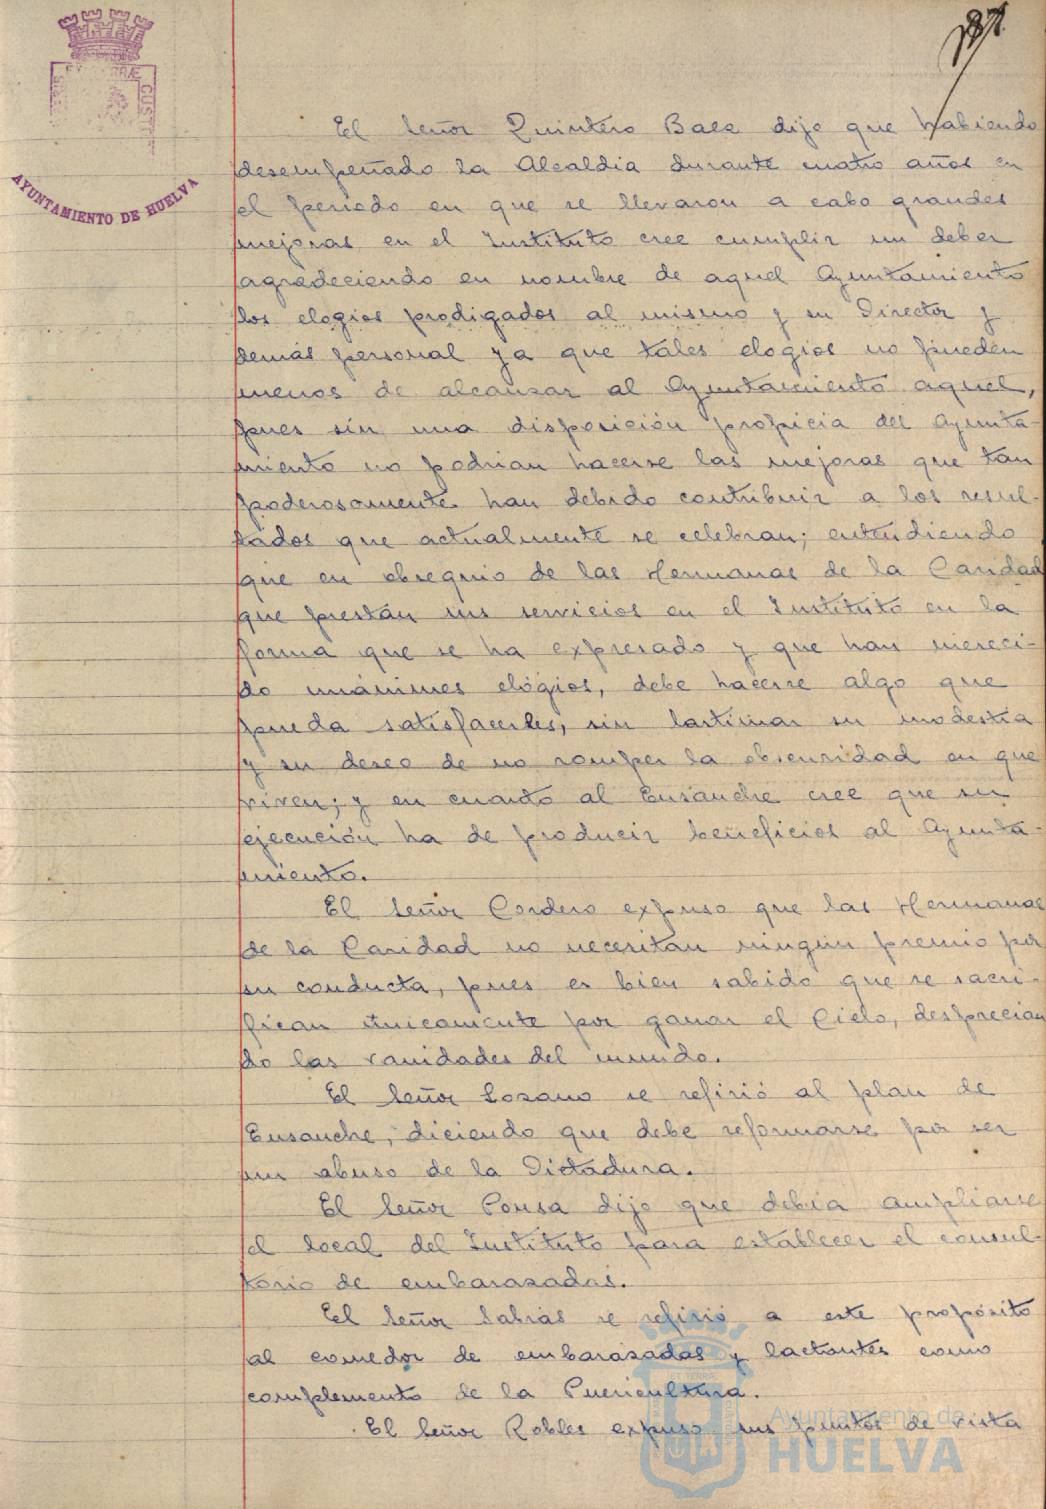 AYUNTAMIENTO DE HUELVA
El Señor Quintero Baez dijo que habiendo
desempeñado la Alcaldia durante cuatro años en
el periodo en que se llevaron a cabo grandes
mejoras en el Instituto cree cumplir un deber
agradeciendo en nombre de aquel Ayuntamiento
los elogios prodigados al mismo y su Director y
demás personal ya que tales elogios no pueden
menos de alcanzar al Ayuntamiento aquel,
pues sin una disposición propicia del Ayunta-
miento no podrian hacerse las mejoras que tan
poderosamente han debido contribuir a los resul-
tados que actualmente se celebran; entendiendo
que en obsequio de las Hermanas de la Caridad
que prestan sus servicios en el Instituto en la
forma que se ha expresado y que han mereci-
do unánimes elógios, debe hacerse algo que
pueda satisfacerles, sin lastimar su modestia
y su deseo de no romper la obscuridad en que
viven; y en cuanto al Ensanche cree que su
ejecución ha de producir beneficios al Ayunta-
miento.
El Señor Cordero expuso que las Hermanas
de la Caridad no necesitan ningún premio por
su conducta, pues es bien sabido que se sacri-
fican únicamente por ganar el Cielo, desprecian
do las vanidades del mundo.
El Señor Lozano se refirió al plan de
Ensanche, diciendo que debe reformarse por ser
un abuso de la Dictadura.
El Señor Ponsa dijo que debia ampliarse
el local del Instituto para establecer el consul-
torio de embarazadas.
El Señor Sabrás se refirió a este propósito
al comedor de embarazadas y lactantes como
complemento de la Puericultura.
El Señor Robles expuso sus puntos de vista
Ayuntamiento de
HUELVA